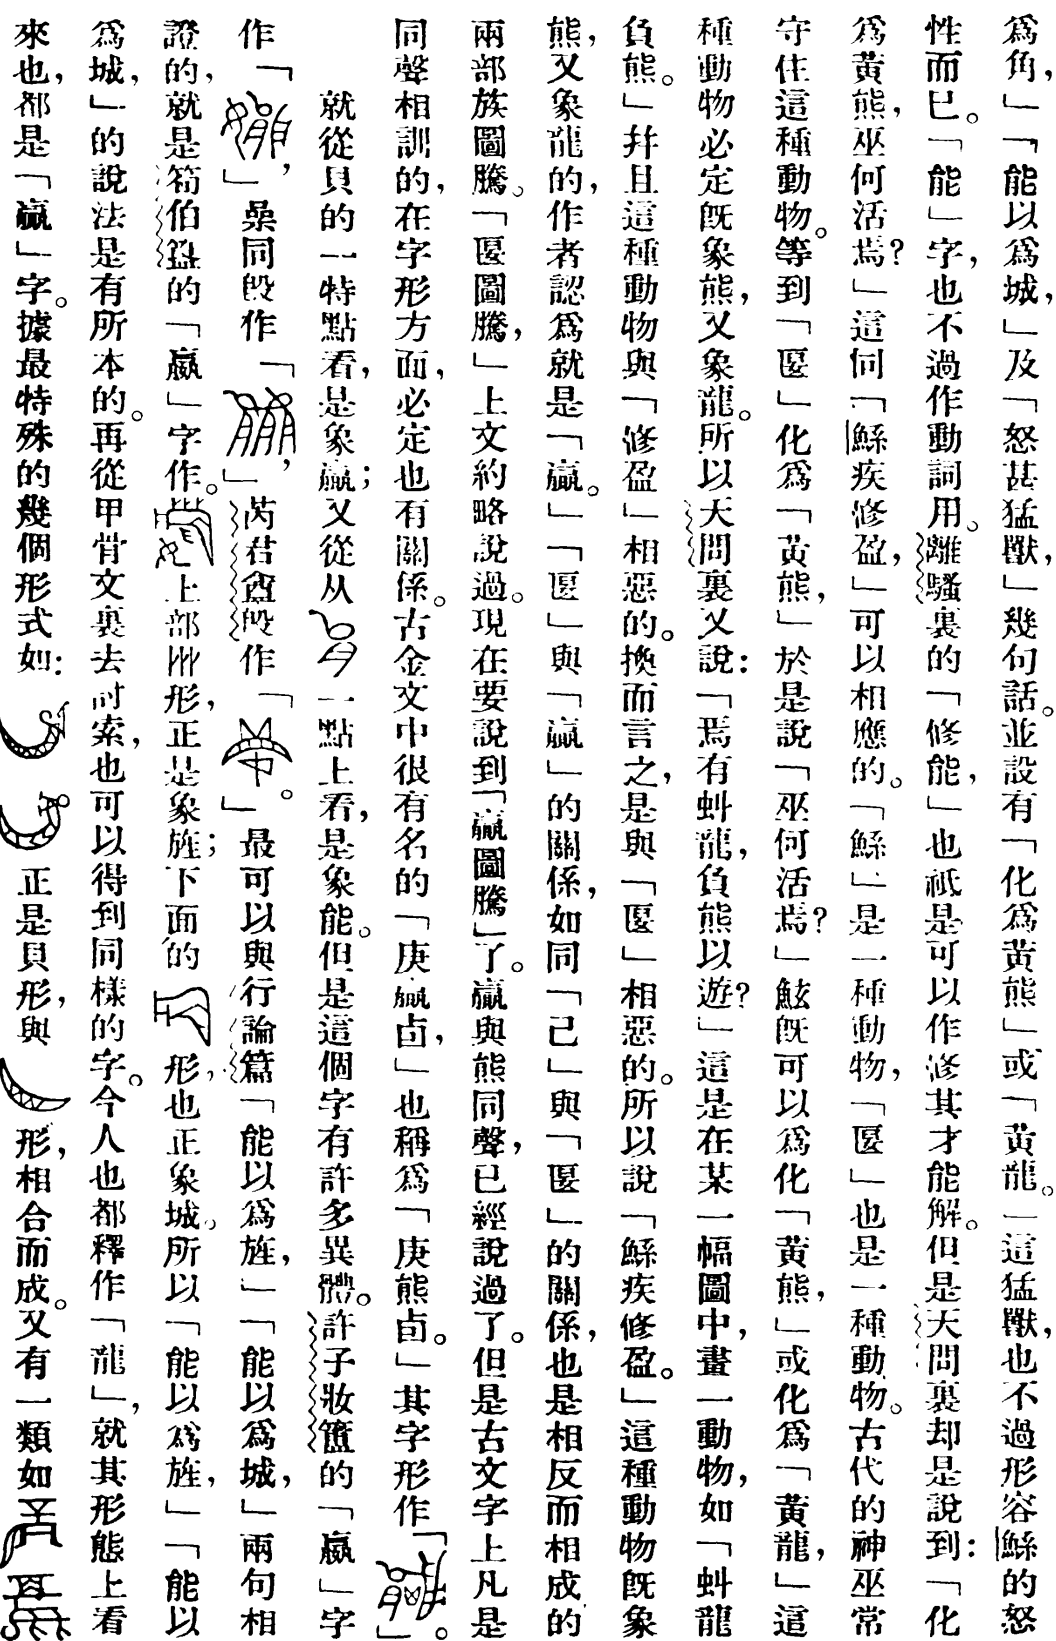 爲角，」「能以爲城，」及「怒甚猛獸，」幾句話。並設有「化爲黃熊」或「黃龍。」這猛獸，也不過形容鯀的怒
性而已。「能」字，也不過作動詞用。離騷裏的「修能，」也祇是可以作修其才能解。但是天問裏却是說到：「化
爲黃熊，巫何活焉？」這同「鯀疾修盈，」可以相應的。「鯀」是一種動物，「匽」也是一種動物。古代的神巫常
守住這種動物。等到「匽」化爲「黃熊，」於是說「巫何活焉？」鮌旣可以爲化「黃熊，」或化爲「黃龍，」這
種動物必定旣象熊，又象龍。所以天問裏又說：「焉有虯龍，負熊以遊？」這是在某一幅圖中，畫一動物，如「虯龍
負熊。」幷且這種動物與「修盈」相惡的。換而言之，是與「匽」相惡的。所以說「鯀疾修盈。」這種動物旣象
熊，又象龍的，作者認爲就是「蠃。」「匽」與「蠃」的關係，如同「己」與「匽」的關係，也是相反而相成的
兩部族圖騰。「匽圖騰，」上文約略說過。現在要說到「蠃圖騰」了。蠃與熊同聲，已經說過了。但是古文字上凡是
同聲相訓的，在字形方面，必定也有關係。古金文中很有名的「庚嬴卣，」也稱爲「庚熊卣。」其字形作「」。
就從貝的一特點看，是象蠃；又從从一點上看，是象能。但是這個字有許多異體。許子妝簠的「嬴」字
作「，」梟同𣪘作「，」芮君盦𣪘作「」。最可以與行論篇「能以爲旌，」「能以爲城，」兩句相
證的，就是筍伯盨的「嬴」字作。上部形，正是象旌；下面的形，也正象城。所以「能以爲旌，」「能以
爲城，」的說法是有所本的。再從甲骨文裏去討索，也可以得到同樣的字。今人也都釋作「龍」，就其形態上看
來也，都是「蠃」字。據最特殊的幾個形式如：正是貝形，與形，相合而成。又有一類如